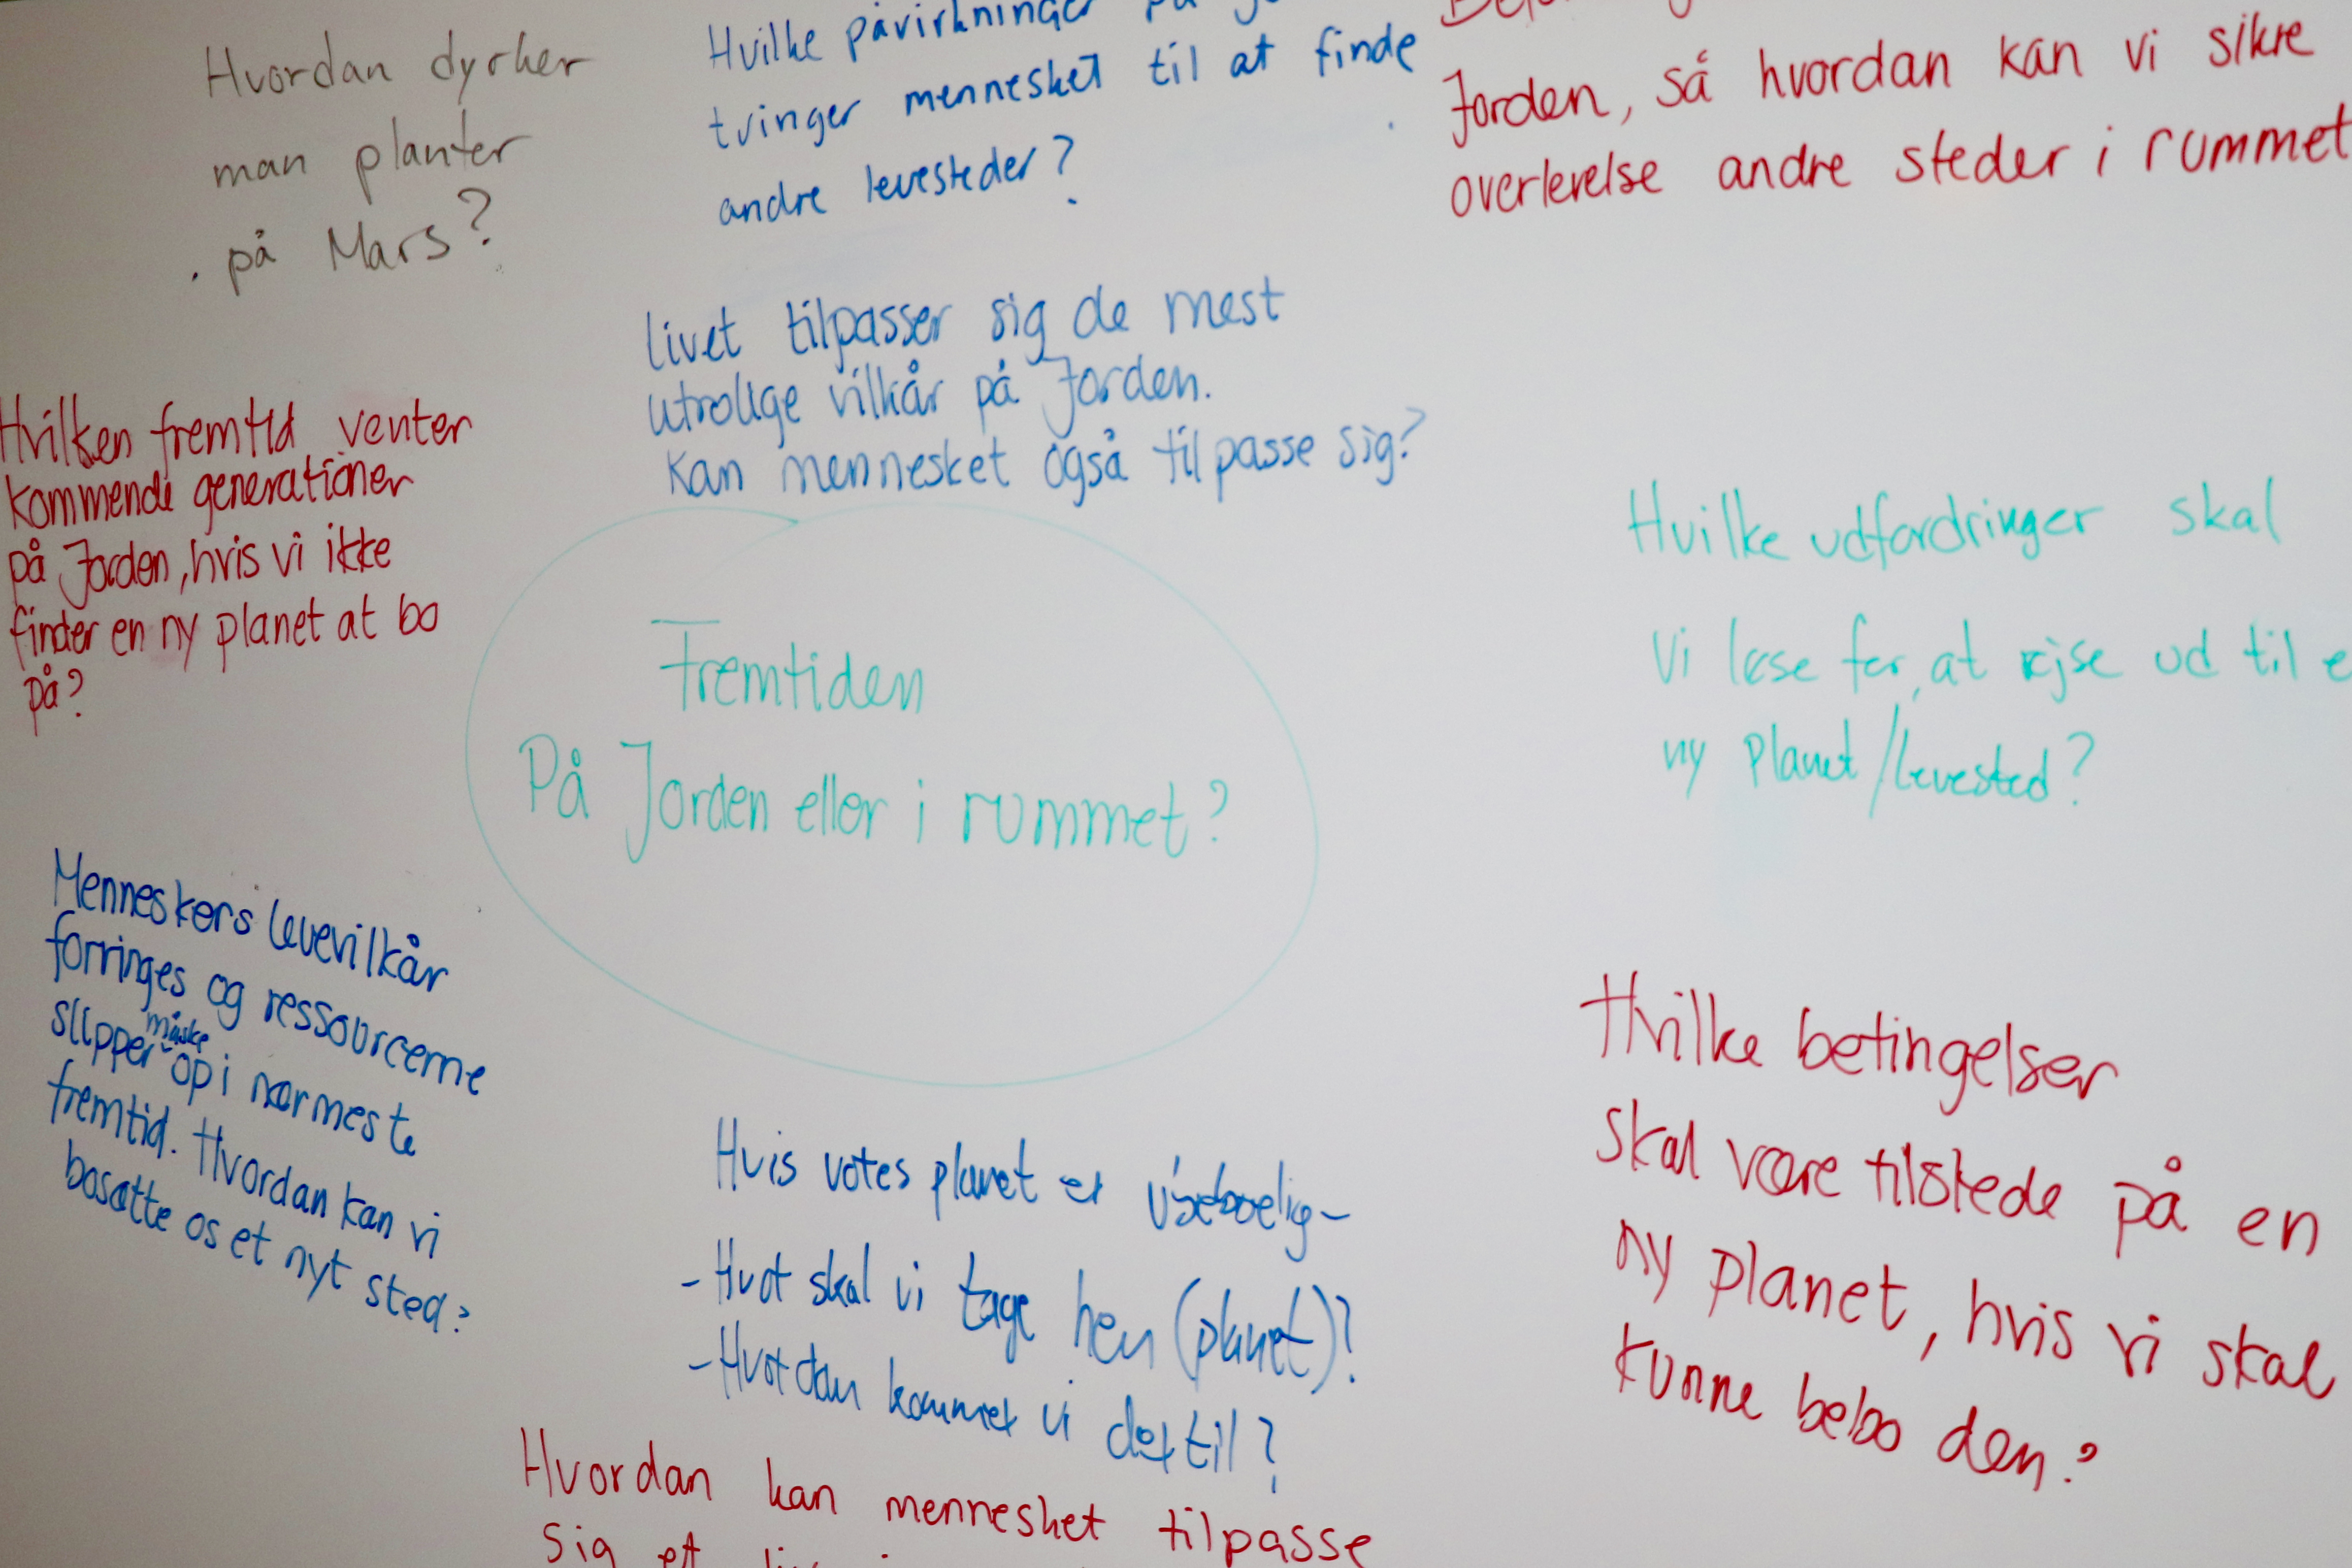 Hvordan dyrker
man planter
på Mars?
Hvilke påvirkninger på
tvinger mennesket til at finde
andre levesteder?
Jorden, så hvordan kan vi sikre
overlevelse andre steder i rummet
livet tilpasser sig de mest
utrolige vilkår på Jorden.
Kan mennesket også tilpasse sig?
Hvilken fremtid venter
kommende generationer
på Jorden, hvis vi ikke
finder en ny planet at bo
på?
Fremtiden
På Jorden eller i rummet?
Hvilke udfordringer skal
Vi løse før, at rejse ud til e
ny planet/levested?
Menneskers levevilkår
forringes og ressourcerne
slipper måske op i nærmeste
fremtid. Hvordan kan vi
bosætte os et nyt sted?
Hvis vores planet er ubeboelig-
- Hvor skal vi tage hen (planet)?
- Hvordan kommer vi dertil?
Hvilke betingelser
skal være tilstede på en
ny planet, hvis vi skal
kunne bebo den?
Hvordan kan mennesket tilpasse
sig et